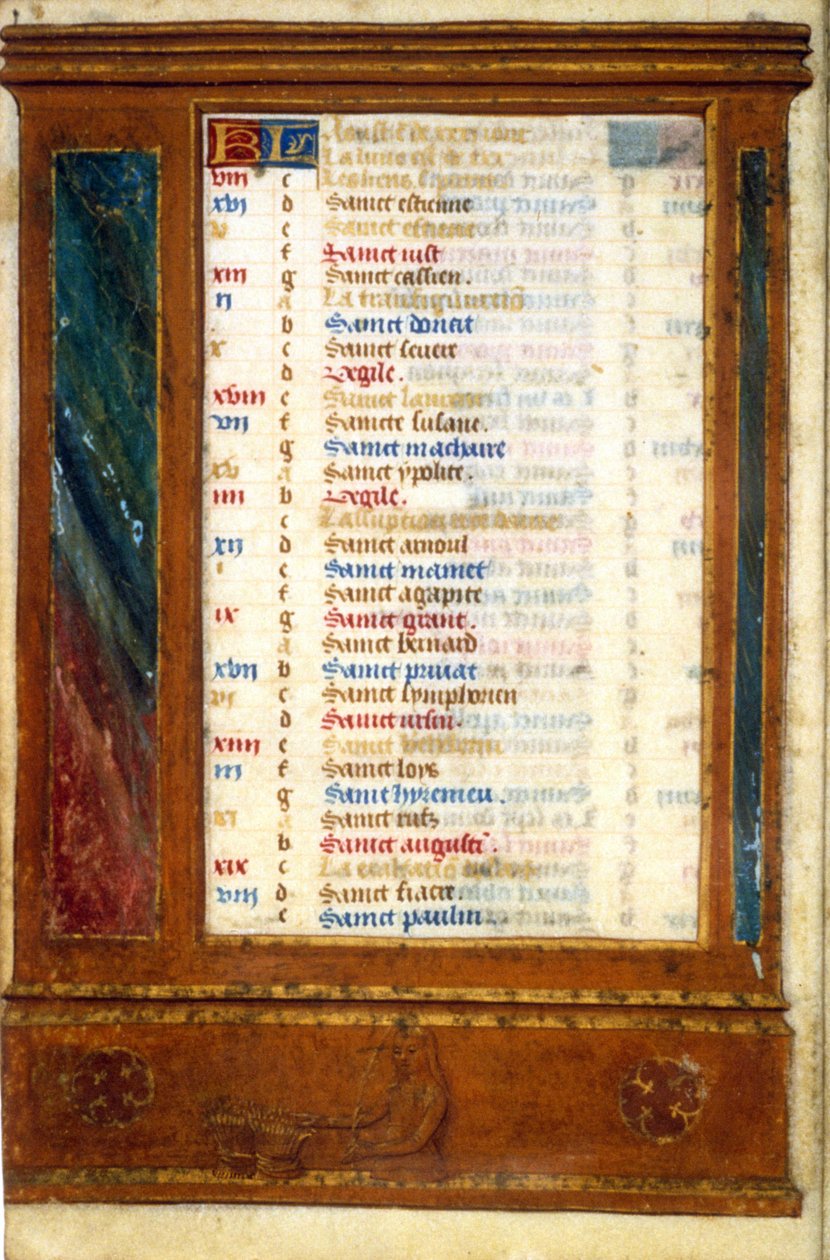 KL Aoust a xxxi iours
La lune est de xxx
viii c Les liens
xvi d Sainct estienne
v e Sainct estienne
f Sainct iust
xiii g Sainct cassien.
ii a La transfiguraciō
b Sainct donat
x c Sainct severe
d Vegile.
xviii e Sainct laurens
vii f Saincte susane.
g Sainct machaire
xv a Sainct ypolite.
iiii b Vegile.
c Lassupcion nre dame
xii d Sainct arnoul
i e Sainct mamet
f Sainct agapite
ix g Sainct grant.
a Sainct bernard
xvii b Sainct privat
vi c Sainct symphorien
d Sainct ursin
xiiii e Sainct
iii f Sainct loys
g Sainct hyreneu.
xi a Sainct rufz
b Sainct augusti.
xix c La
viii d Sainct fiacre.
e Sainct paulin